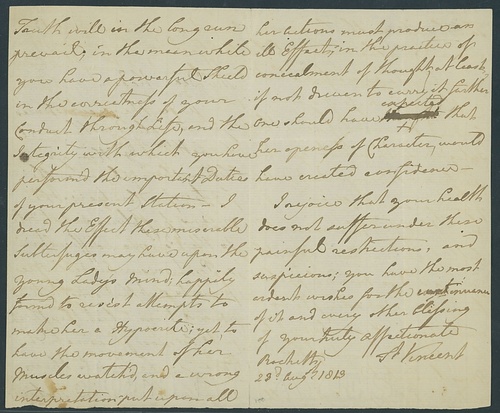 Truth will in the long run
prevail; in the mean while
you have a powerful Shield
in the correctness of your
Conduct through Life, and the
Integrity with which you have
perform'd the important Duties
of your present Station — I
dread the Effect these miserable
Subterfuges may have upon the
young Lady's mind, happily
form'd to resist attempts to
make her a Hypocrite; yet to
have the movement of her
Muscles watch'd, and a wrong
interpretation put upon all
her actions must produce an
ill Effect, in the practice of
concealment of thought, at least,
if not driven to carry it farther
one should have expected that
her openess of Character, would
have created confidence —
I rejoice that your health
does not suffer under these
painful restrictions, and
suspicions; you have the most
ardent wishes for the continuance
of it and every other blessing
of your truly affectionate
Rochetts St Vincent
23d Augt 1813